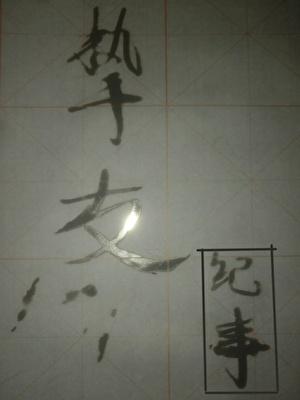 挚友
纪事